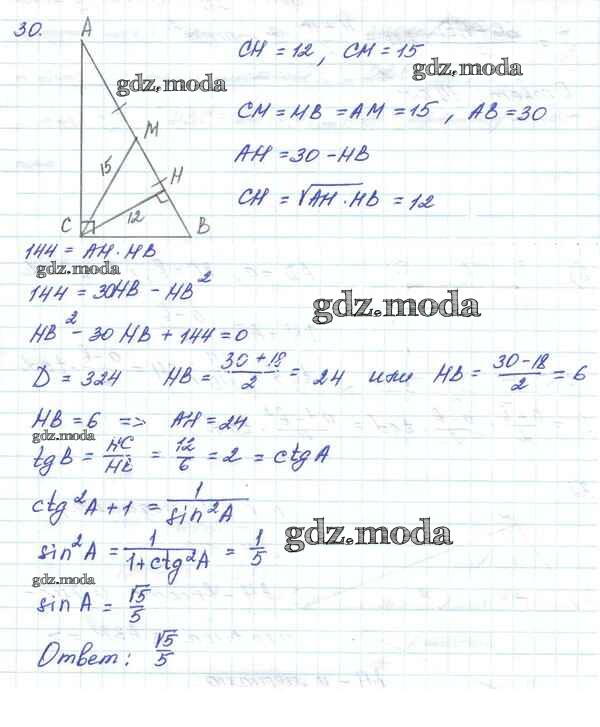 30.
A
M
H
C
B
15
12
CH = 12, CM = 15
gdz.moda
gdz.moda
CM = MB = AM = 15, AB = 30
AH = 30 - HB
CH = √AH · HB = 12
144 = AH · HB
gdz.moda
144 = 30HB - HB²
gdz.moda
HB² - 30HB + 144 = 0
D = 324 HB = (30+18)/2 = 24 или HB = (30-18)/2 = 6
HB = 6 => AH = 24
gdz.moda
tgB = HC/HB = 12/6 = 2 = ctgA
ctg²A + 1 = 1/sin²A
sin²A = 1/(1+ctg²A) = 1/5
gdz.moda
gdz.moda
sinA = √5/5
Ответ: √5/5